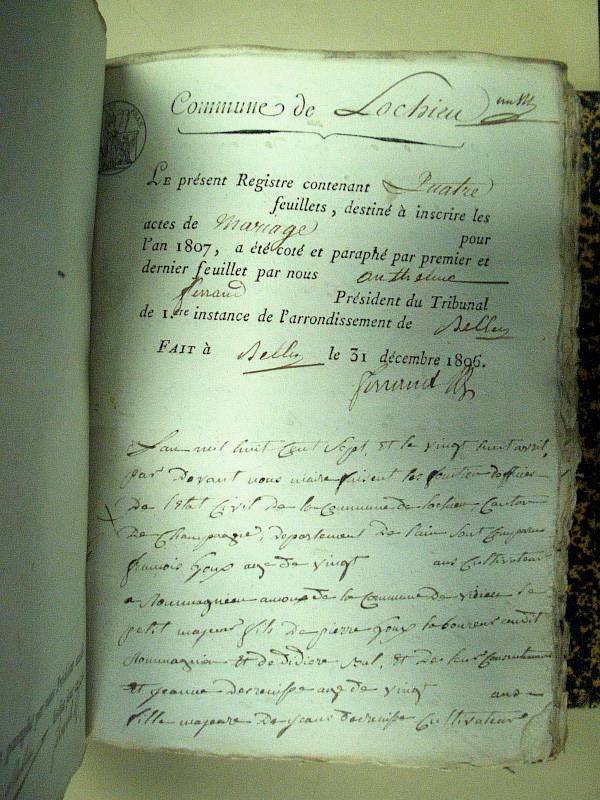 Commune de Lochieu
LE présent Registre contenant Quatre
feuillets, destiné à inscrire les
actes de Mariage pour
l'an 1807, a été coté et paraphé par premier et
dernier feuillet par nous Anthelme
ferrand Président du Tribunal
de 1.ère instance de l'arrondissement de Belley
FAIT à Belley le 31 décembre 1806.
ferrand
L'an mil huit cent sept, et le vingt huit avril,
par devant nous maire faisent les fonction d'officier
De l'état Civil de la Commune de lochieu Canton
De Champagne, département de l'ain sont comparu
françois Goux age de vingt ans Cultivateur
a Rommagnieu de la Commune de virieu le
petit majeur fils de pierre Goux laboureur audit
Rommagnieu et de Didiere et de leur Consentement
et jeanne age de vingt ans
fille majeure De jean Cultivateur